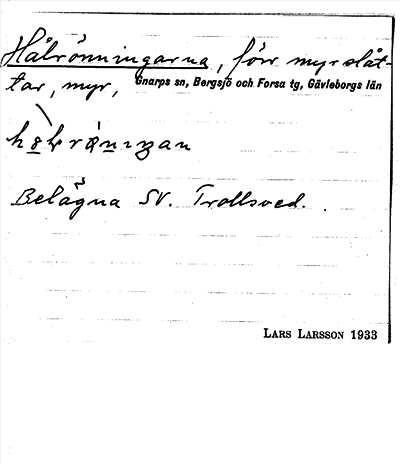 Hålrönningarna, förr myrslåt-
tar, myr, Gnarps sn, Bergsjö och Forsa tg, Gävleborgs län
Belägna SV. Trollsved.
LARS LARSSON 1933